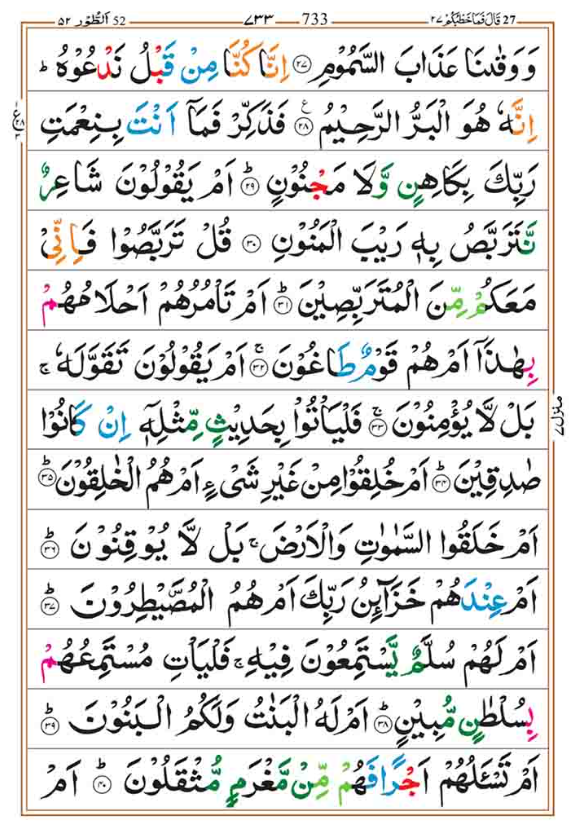 27 قَالَ فَمَا خَطْبُكُمْ ٢٧ — 733 — ٧٣٣ — 52 اَلطُّوْر ٥٢
وَ وَقٰىنَا عَذَابَ السَّمُوْمِ ﴿۲۷﴾ اِنَّا كُنَّا مِنْ قَبْلُ نَدْعُوْهُ ؕ
اِنَّهٗ هُوَ الْبَرُّ الرَّحِیْمُ ﴿۲۸﴾ ع فَذَكِّرْ فَمَاۤ اَنْتَ بِنِعْمَتِ
رَبِّكَ بِكَاهِنٍ وَّلَا مَجْنُوْنٍ ﴿۲۹﴾ ؕ اَمْ یَقُوْلُوْنَ شَاعِرٌ
نَّتَرَبَّصُ بِهٖ رَیْبَ الْمَنُوْنِ ﴿۳۰﴾ قُلْ تَرَبَّصُوْا فَاِنِّیْ
مَعَكُمْ مِّنَ الْمُتَرَبِّصِیْنَ ﴿۳۱﴾ ؕ اَمْ تَاْمُرُهُمْ اَحْلَامُهُمْ
بِهٰذَاۤ اَمْ هُمْ قَوْمٌ طَاغُوْنَ ﴿۳۲﴾ ۚ اَمْ یَقُوْلُوْنَ تَقَوَّلَهٗ ۚ
بَلْ لَّا یُؤْمِنُوْنَ ﴿۳۳﴾ ۚ فَلْیَاْتُوْا بِحَدِیْثٍ مِّثْلِهٖۤ اِنْ كَانُوْا
صٰدِقِیْنَ ﴿۳۴﴾ ؕ اَمْ خُلِقُوْا مِنْ غَیْرِ شَیْءٍ اَمْ هُمُ الْخٰلِقُوْنَ ﴿۳۵﴾ ؕ
اَمْ خَلَقُوا السَّمٰوٰتِ وَالْاَرْضَ ۚ بَلْ لَّا یُوْقِنُوْنَ ﴿۳۶﴾ ؕ
اَمْ عِنْدَهُمْ خَزَآىِٕنُ رَبِّكَ اَمْ هُمُ الْمُصَۜیْطِرُوْنَ ﴿۳۷﴾ ؕ
اَمْ لَهُمْ سُلَّمٌ یَّسْتَمِعُوْنَ فِیْهِ ۚ فَلْیَاْتِ مُسْتَمِعُهُمْ
بِسُلْطٰنٍ مُّبِیْنٍ ﴿۳۸﴾ ؕ اَمْ لَهُ الْبَنٰتُ وَلَكُمُ الْبَنُوْنَ ﴿۳۹﴾ ؕ
اَمْ تَسْـَٔلُهُمْ اَجْرًا فَهُمْ مِّنْ مَّغْرَمٍ مُّثْقَلُوْنَ ﴿۴۰﴾ ؕ اَمْ
منزل ٧